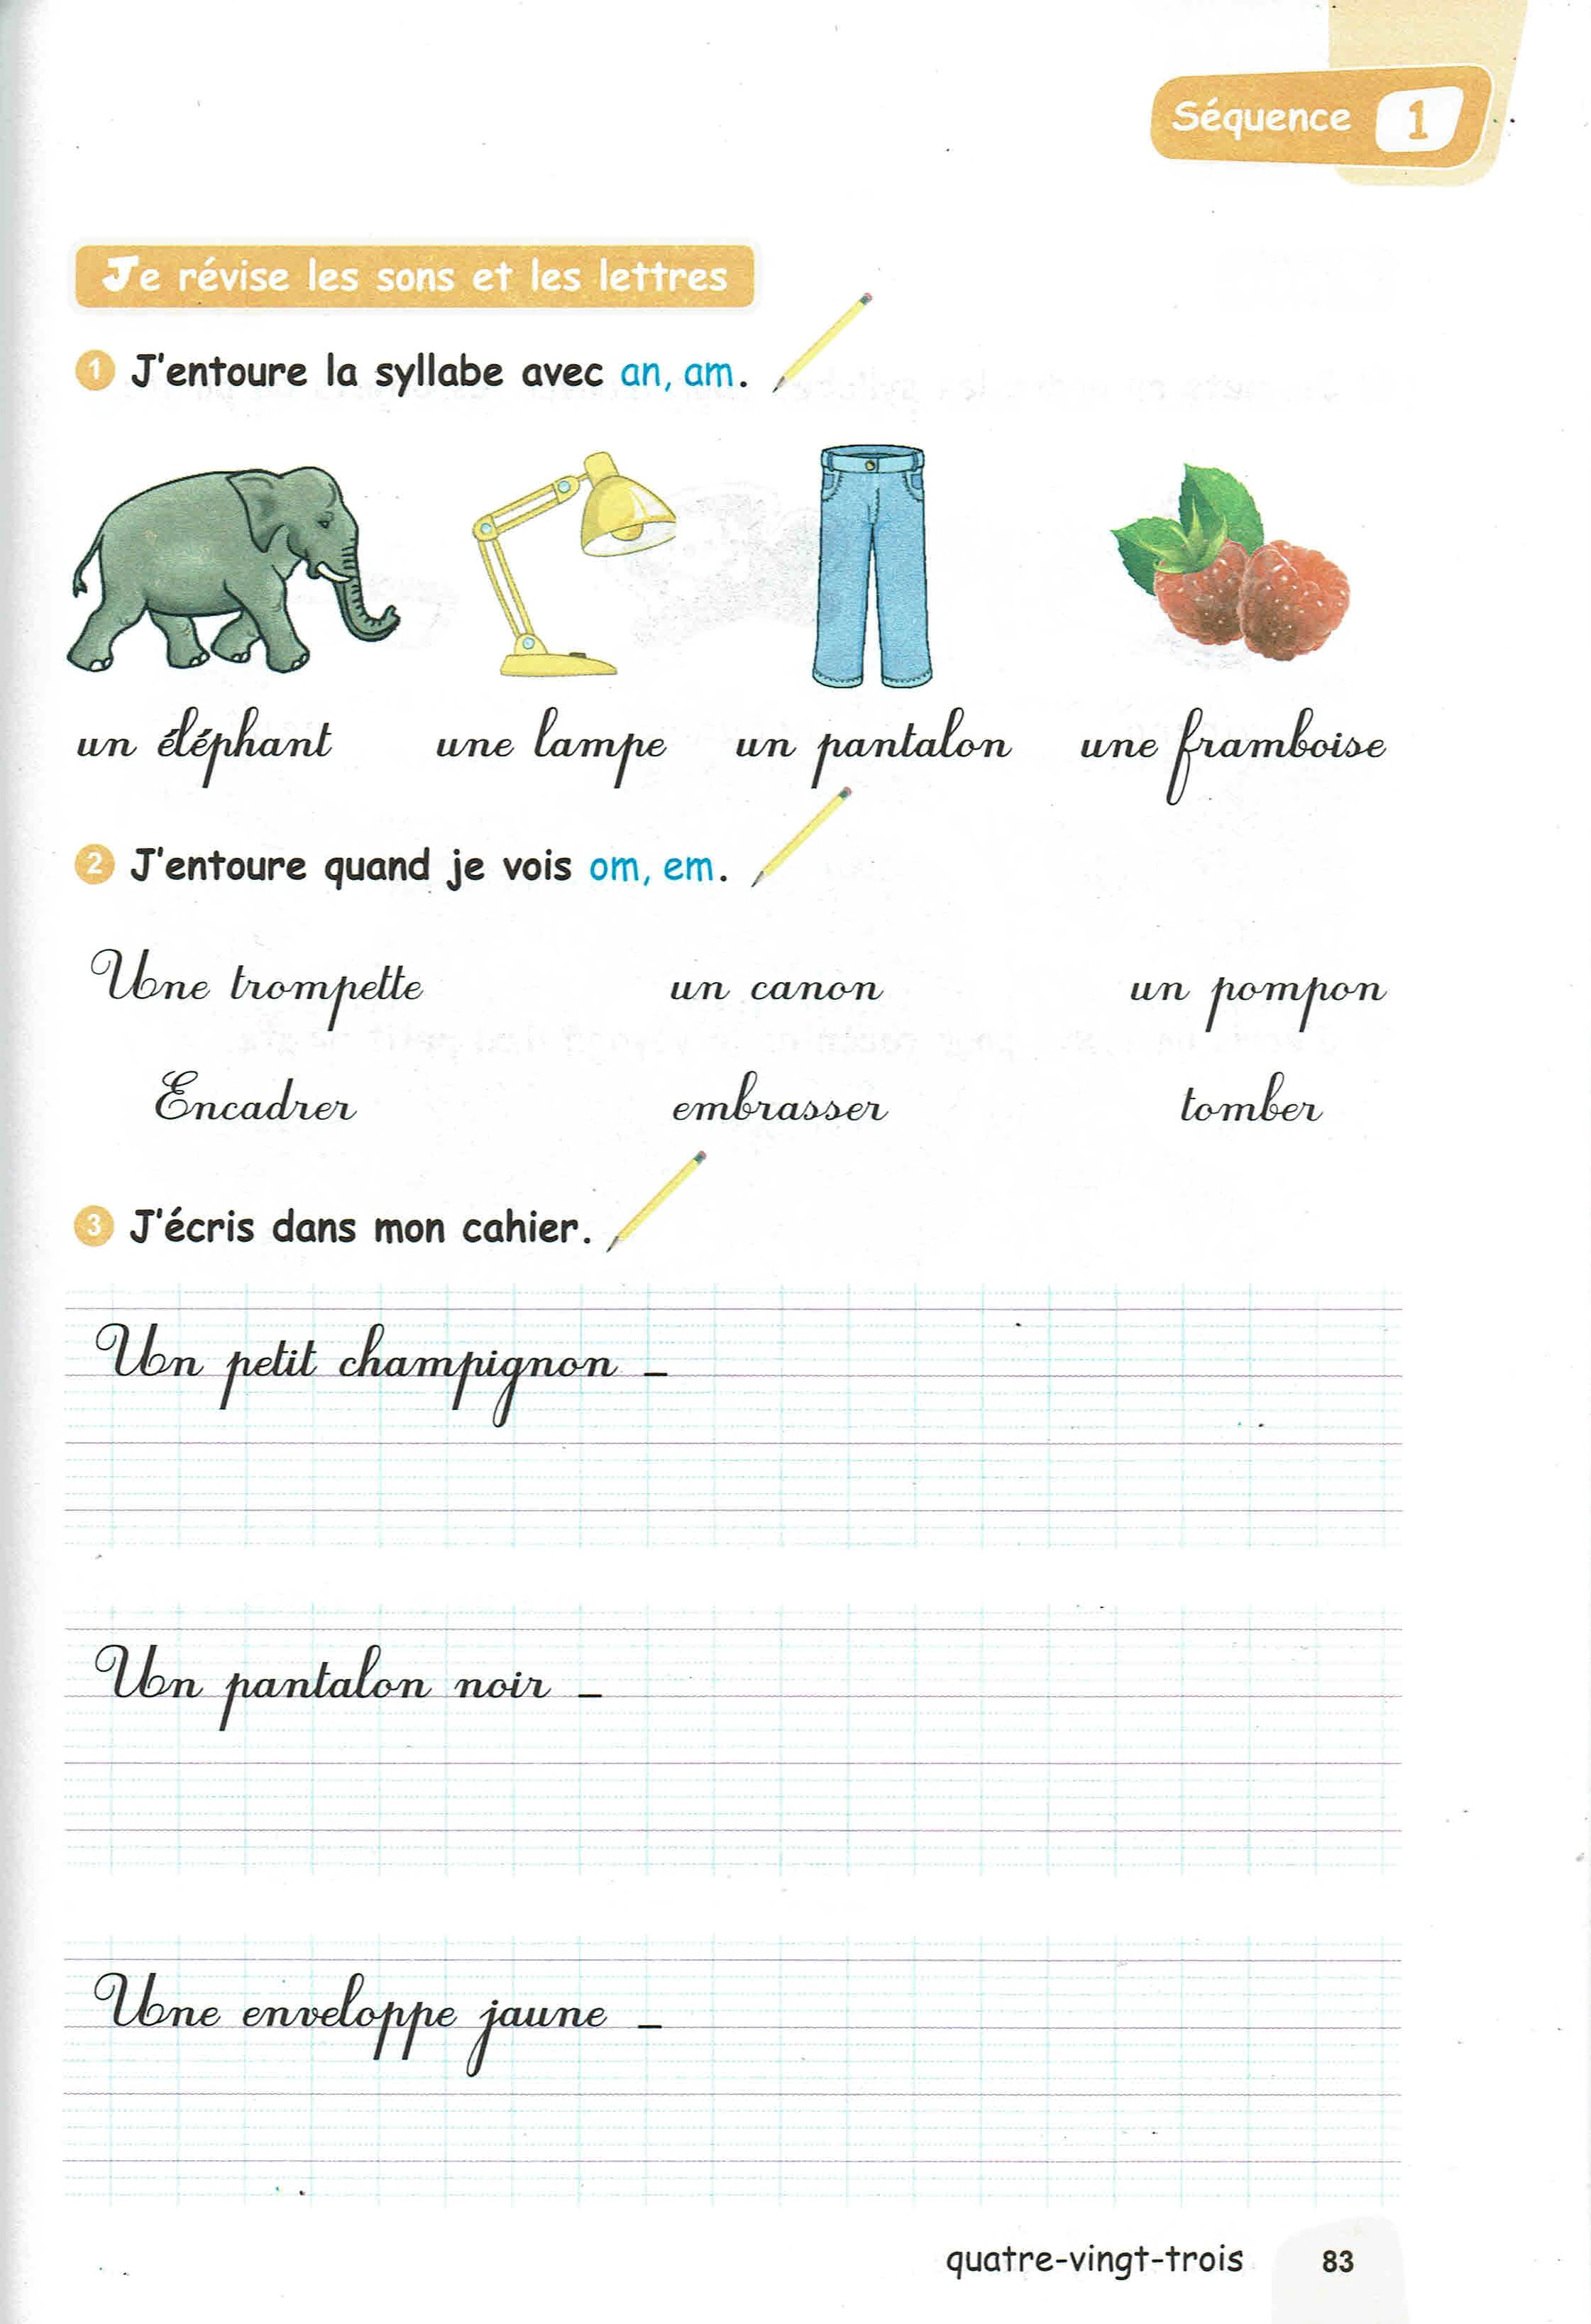 Séquence 1
Je révise les sons et les lettres
1 J'entoure la syllabe avec an, am.
un éléphant une lampe un pantalon une framboise
2 J'entoure quand je vois om, em.
Une trompette un canon un pompon
Encadrer embrasser tomber
3 J'écris dans mon cahier.
Un petit champignon _
Un pantalon noir _
Une enveloppe jaune _
quatre-vingt-trois 83